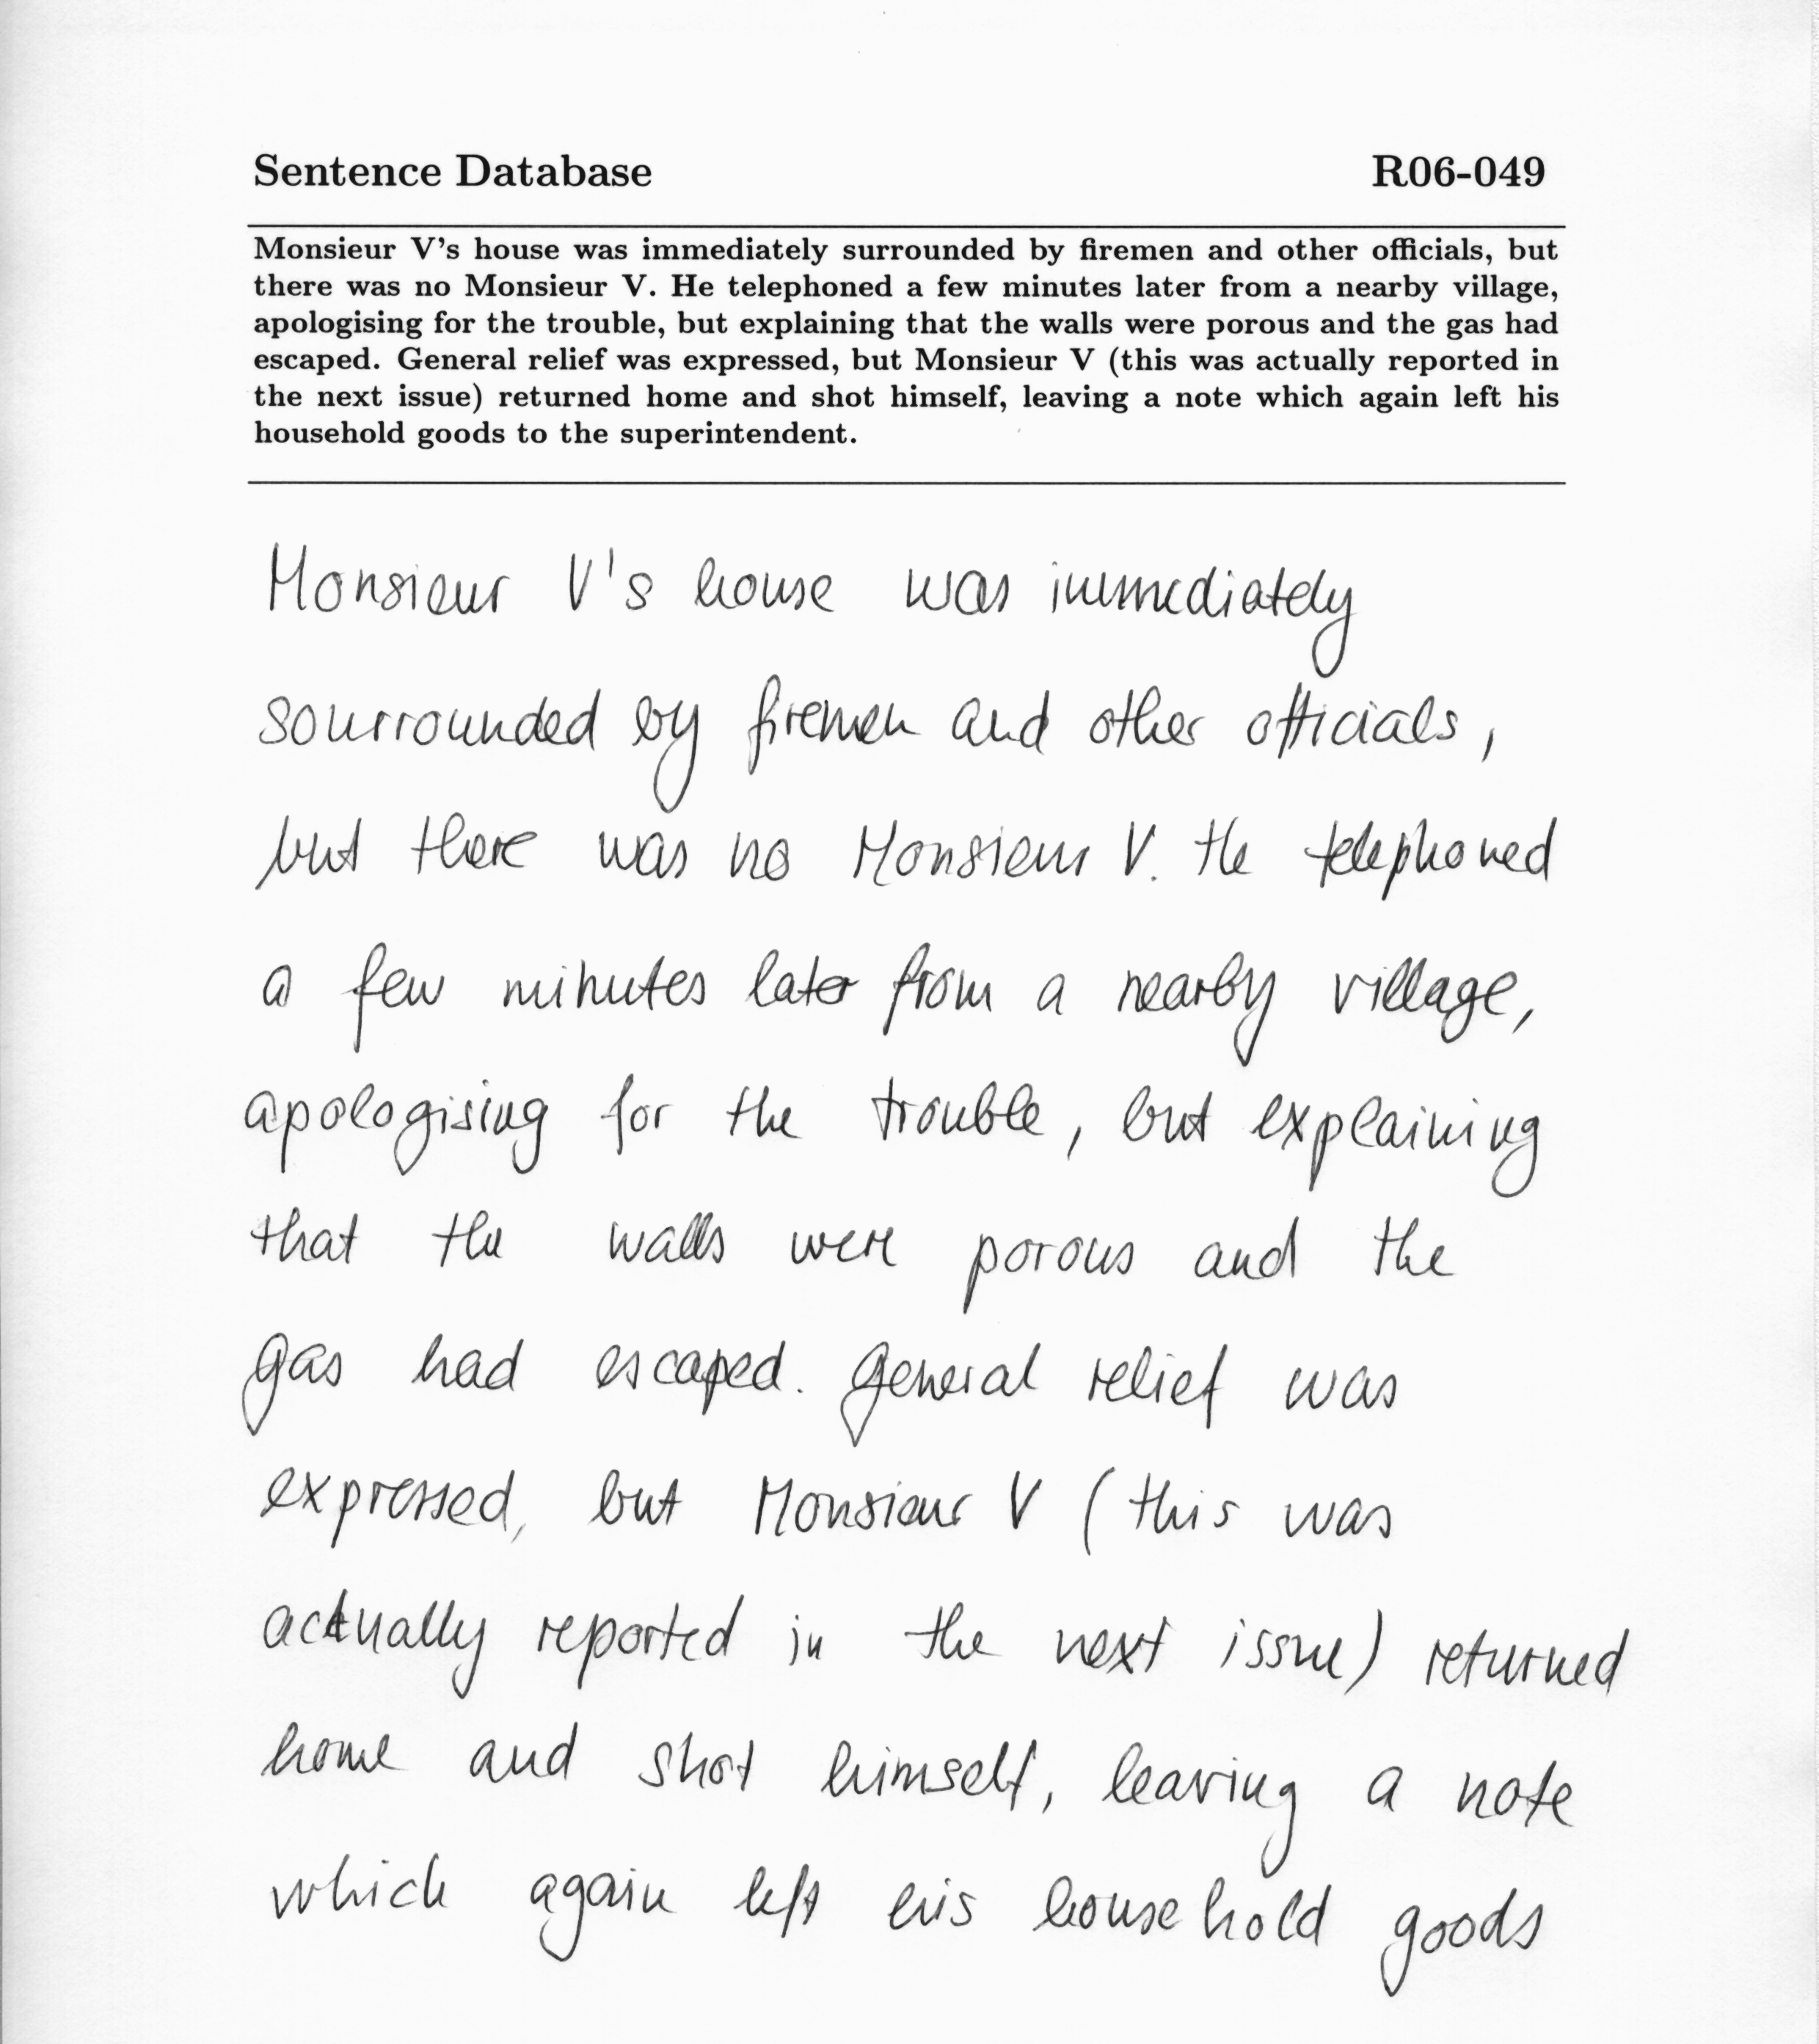 Sentence Database R06-049
Monsieur V's house was immediately surrounded by firemen and other officials, but
there was no Monsieur V. He telephoned a few minutes later from a nearby village,
apologising for the trouble, but explaining that the walls were porous and the gas had
escaped. General relief was expressed, but Monsieur V (this was actually reported in
the next issue) returned home and shot himself, leaving a note which again left his
household goods to the superintendent.
Monsieur V's house was immediately
sourrounded by firemen and other officials,
but there was no Monsieur V. He telephoned
a few minutes later from a nearby village,
apologising for the trouble, but explaining
that the walls were porous and the
gas had escaped. General relief was
expressed, but Monsieur V (this was
actually reported in the next issue) returned
home and shot himself, leaving a note
which again left his household goods